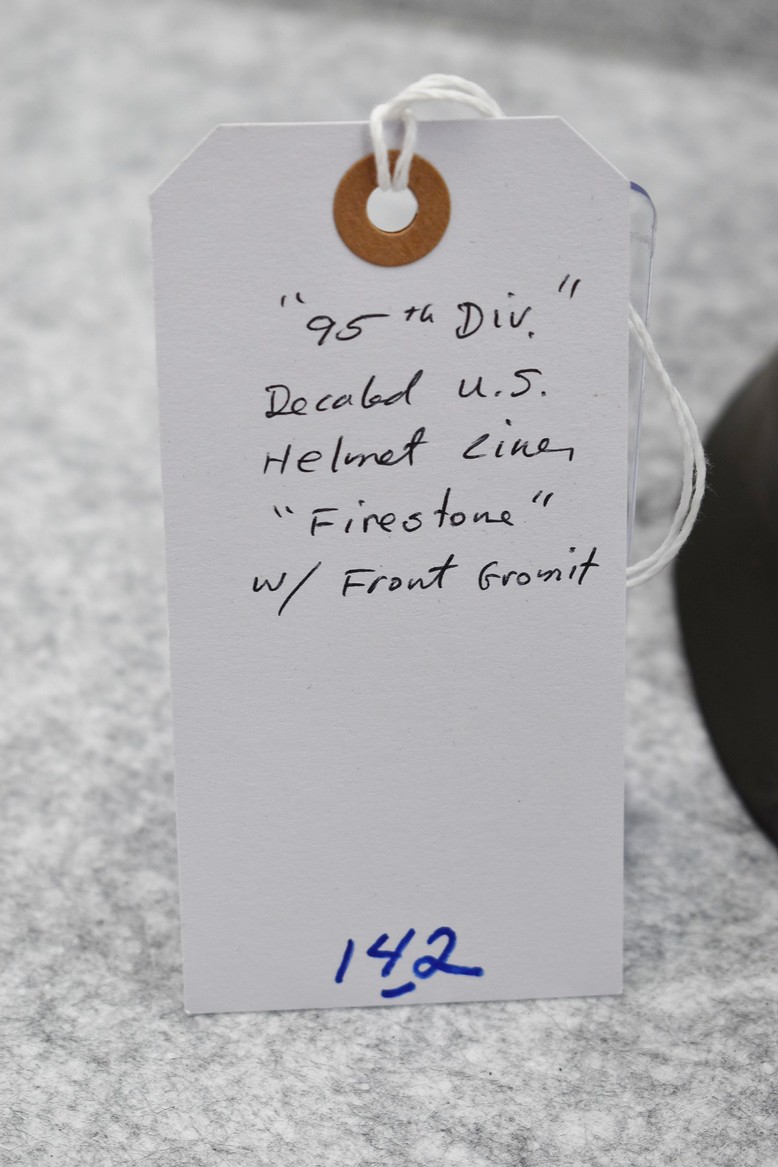 "95th Div."
Decaled U.S.
Helmet Liner
"Firestone"
w/ Front Gromit
142